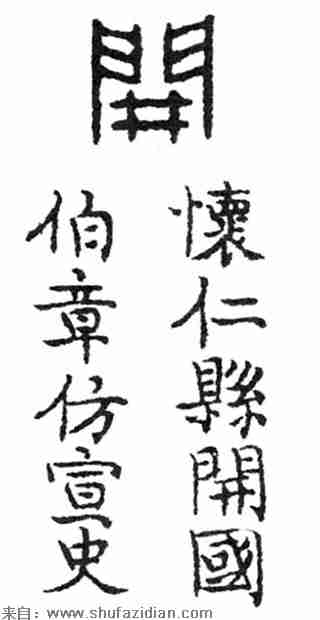 開
懷仁縣開國
伯章仿宣史
来自：www.shufazidian.com